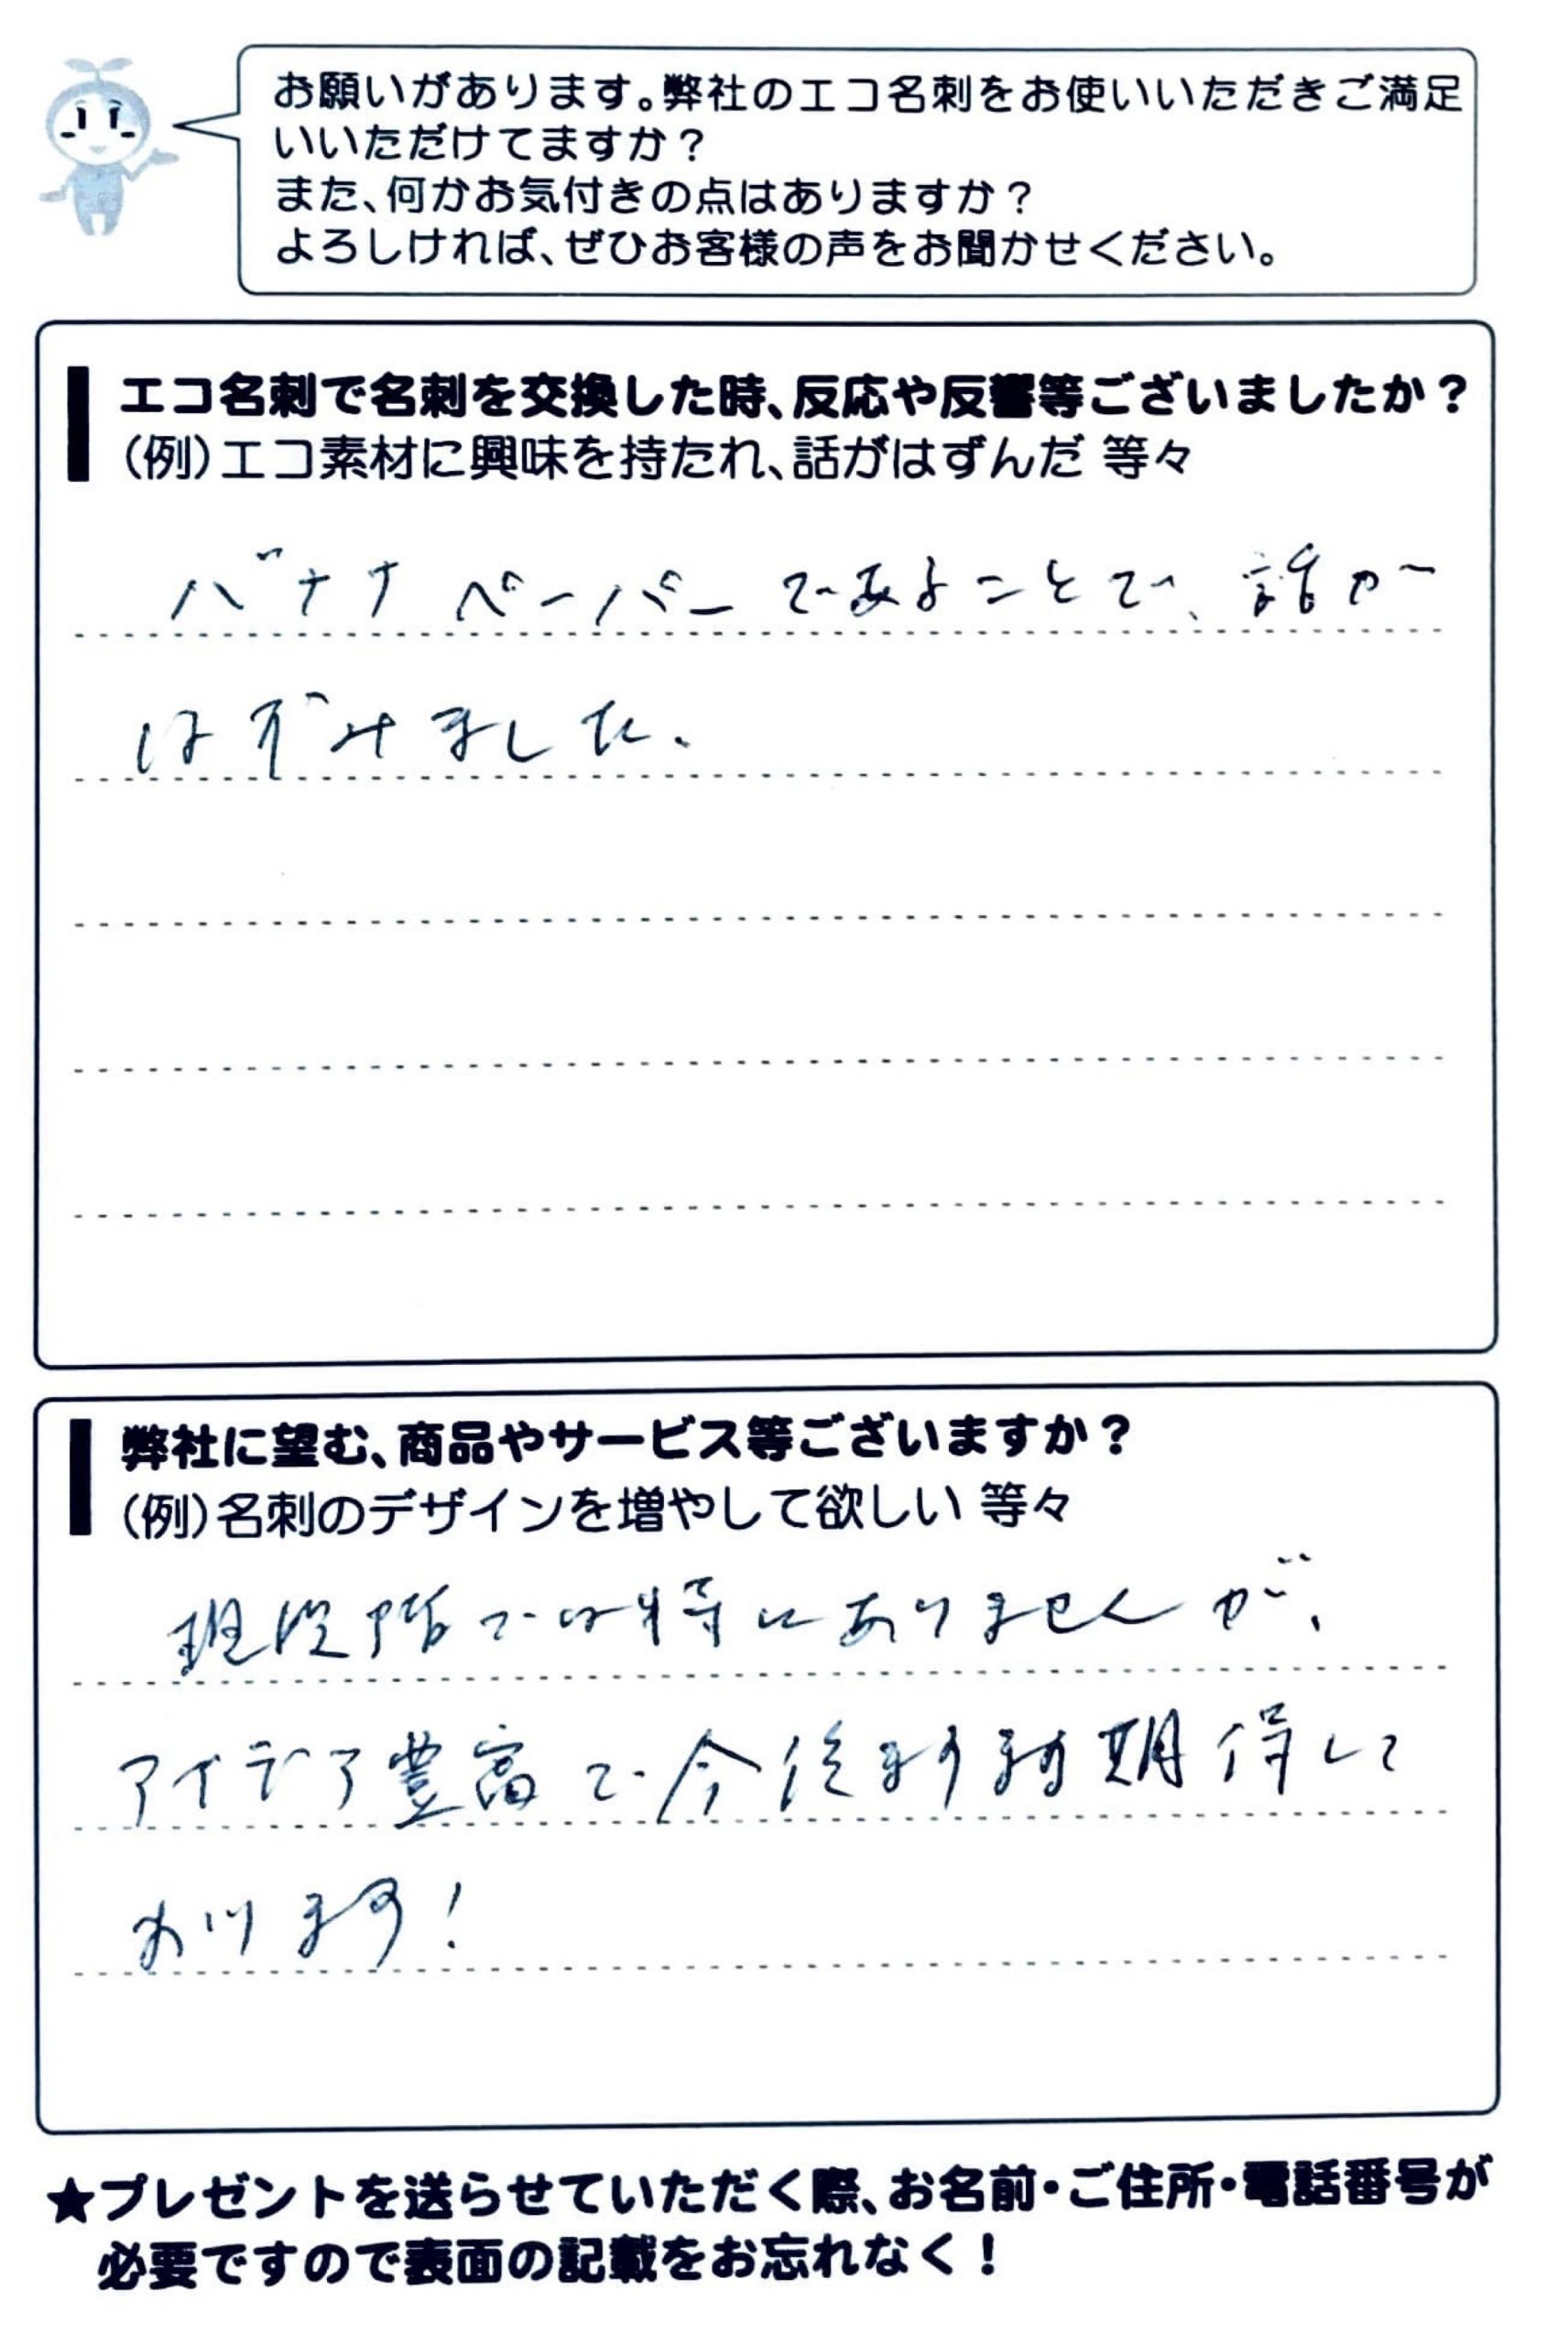 お願いがあります。弊社のエコ名刺をお使いいただきご満足
いいただけてますか？
また、何かお気付きの点はありますか？
よろしければ、ぜひお客様の声をお聞かせください。
エコ名刺で名刺を交換した時、反応や反響等ございましたか？
（例）エコ素材に興味を持たれ、話がはずんだ 等々
バナナペーパーであることで、話が
はずみました。
弊社に望む、商品やサービス等ございますか？
（例）名刺のデザインを増やして欲しい 等々
現段階では特にありませんが、
アイデア豊富で今後 期待して
おります！
★プレゼントを送らせていただく際、お名前・ご住所・電話番号が
必要ですので表面の記載をお忘れなく！